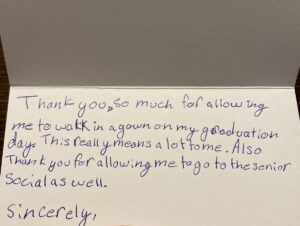 Thank you, so much for allowing
me to walk in a gown on my graduation
day. This really means a lot to me. Also
Thank you for allowing me to go to the senior
Social as well.
Sincerely,